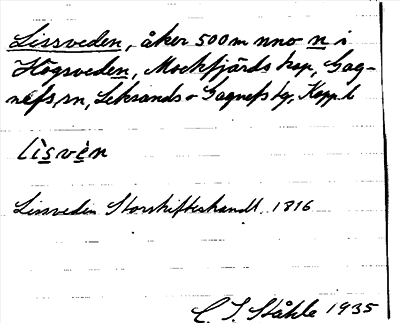 Lissveden, åker 500 m nno n i
Högsveden, Mockfjärds kap, Gag-
nefs sn, Leksands o Gagnefs tg, Kopp. l
lìsvèn
Lissveden Storskifteshandl. 1816
C. I. Ståhle 1935